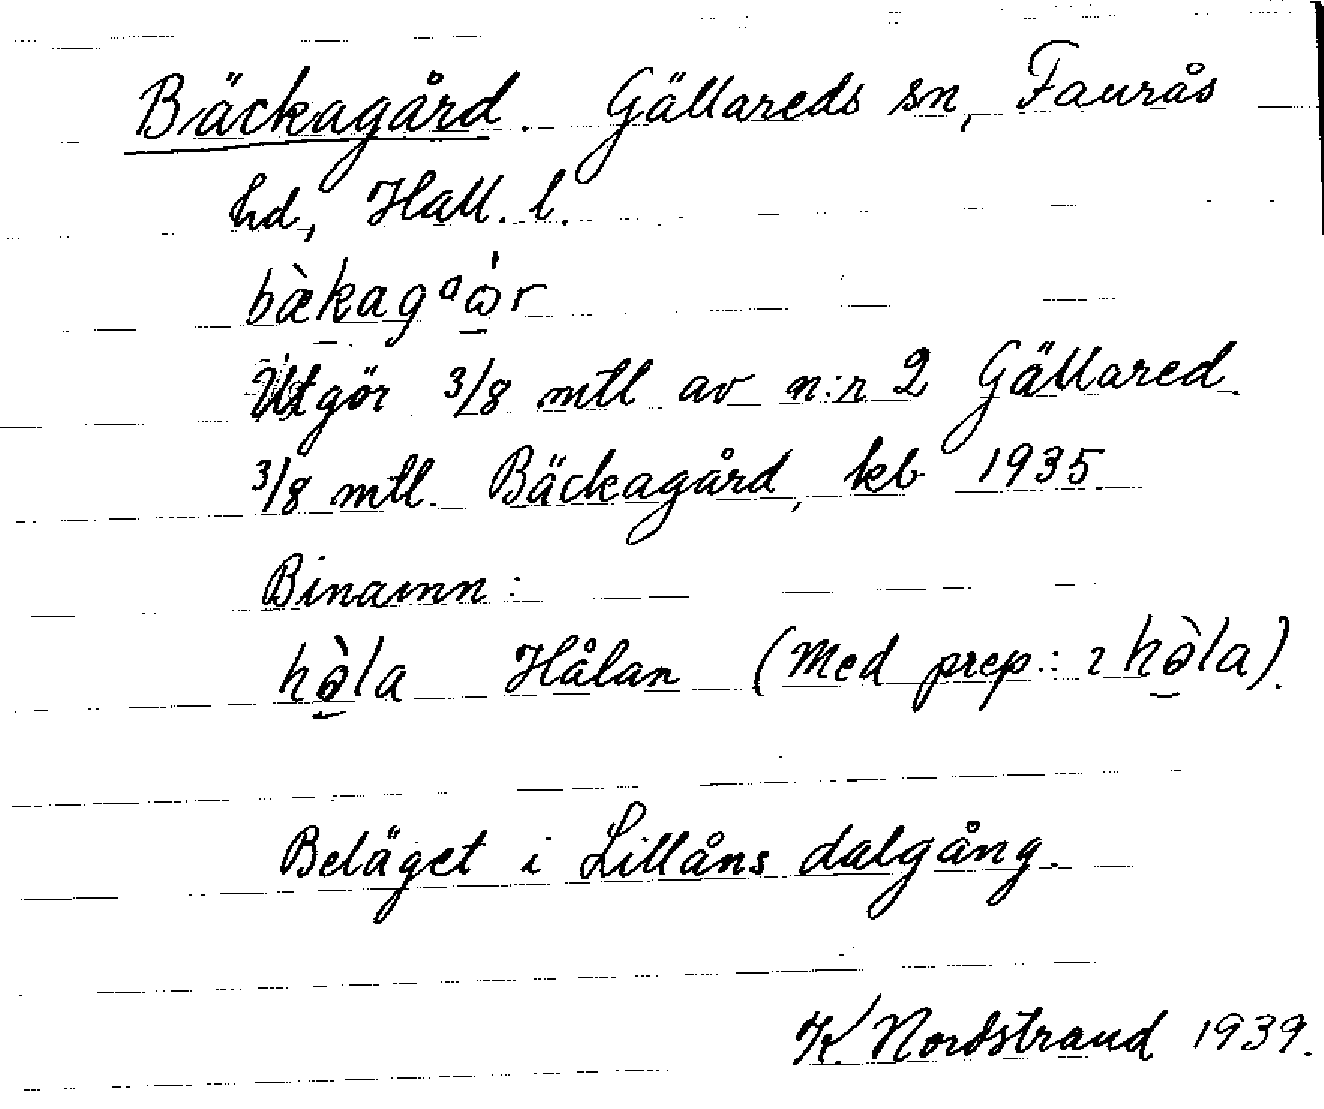 Bäckagård. Gällareds sn, Faurås
hd, Hall. l.
bæ̀kagᵃω̇r
Utgör 3/8 mtl av n:r 2 Gällared.
3/8 mtl. Bäckagård, kb 1935.
Binamn:
hə̀la Hålan (Med prep.: ı hə̀la).
Beläget i Lillåns dalgång.
K Nordstrand 1939.